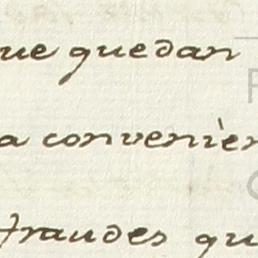 que quedan
a convenien
fraudes qu